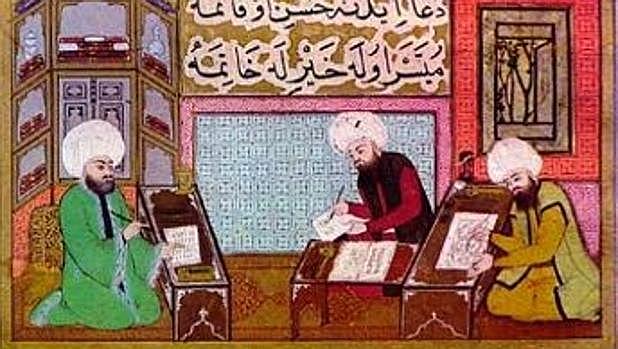 دعا ايدنه حسن وفاتمه
ميسر اوله خير له خاتمه